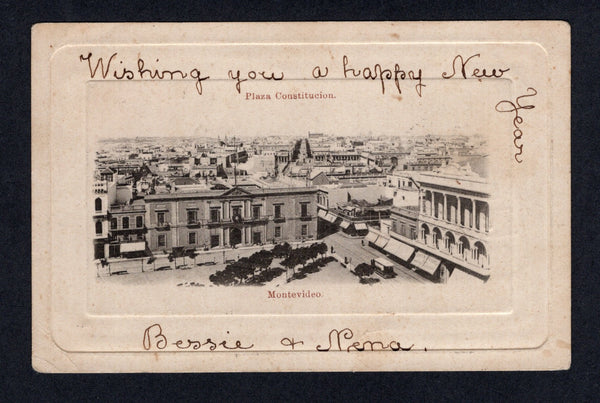 Wishing you a happy New Year
Plaza Constitucion.
Montevideo.
Bessie & Nena.